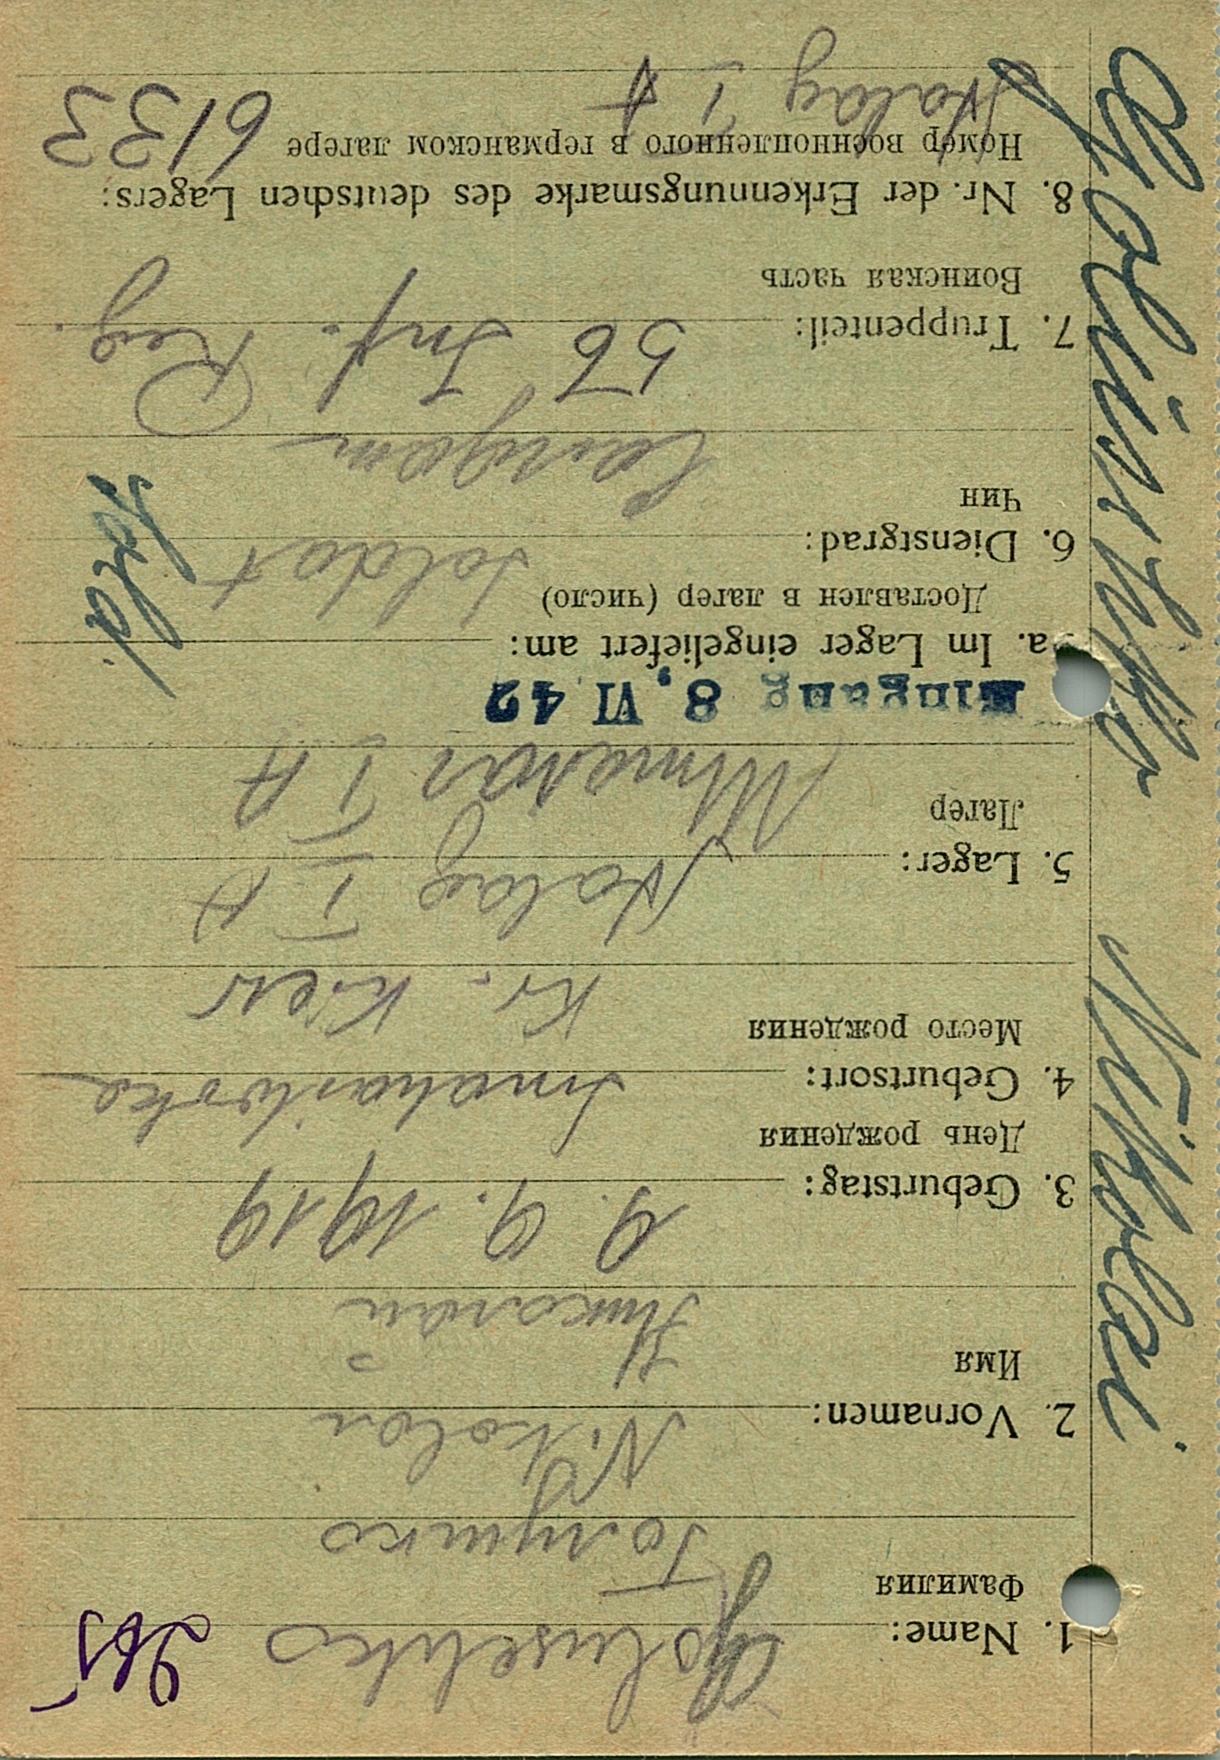 965
1. Name: Goluschko
Фамилия Голушко
2. Vornamen: Nikolai
Имя Николай
3. Geburtstag: 9. 9. 1919
День рождения
4. Geburtsort:
Место рождения Kr. Kiew
5. Lager: Stalag I A
Лагер Шталаг I A
Eingang 8. VI 42
5a. Im Lager eingeliefert am:
Доставлен в лагер (число)
Sold.
6. Dienstgrad: Soldat
Чин Солдат
7. Truppenteil: 56 Inf. Reg.
Воинская часть
8. Nr. der Erkennungsmarke des deutschen Lagers:
Номер военнопленного в германском лагере 6133
Stalag I A
Goluschko Nikolai